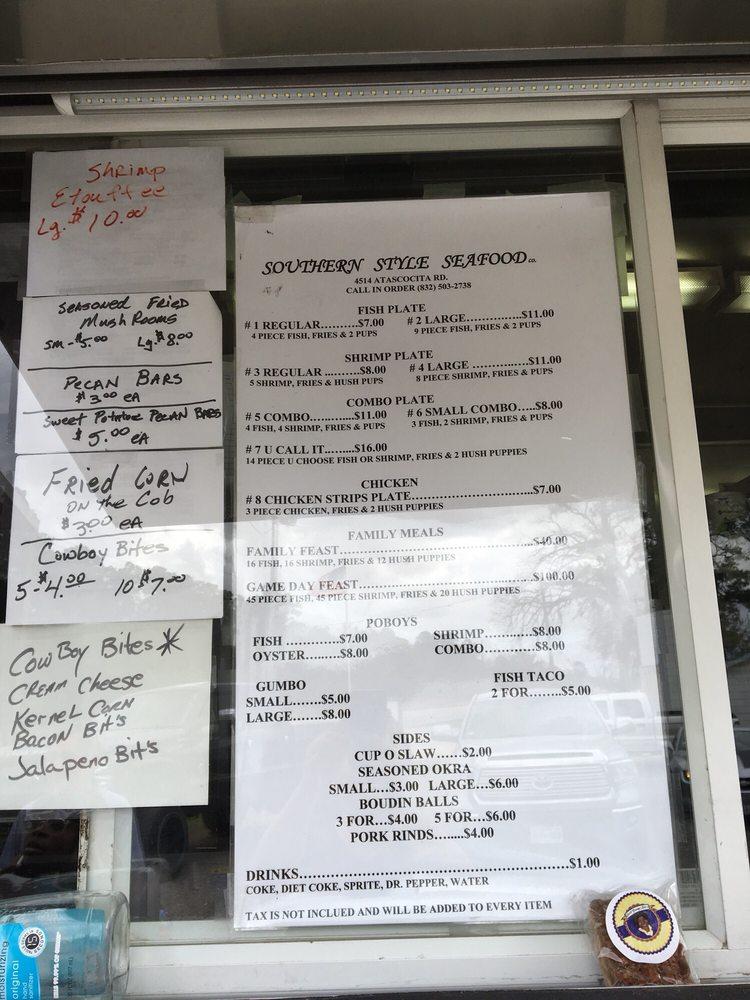 Shrimp
Etouffee
Lg. $10.00
Seasoned Fried
Mushrooms
sm - 5.00 Lg. $8.00
Pecan Bars
$3.00 ea
Sweet Potatoe Pecan Bars
$5.00 ea
Fried Corn
on the Cob
$3.00 ea
Cowboy Bites
5-$4.00 10 $7.00
CowBoy Bites*
Cream Cheese
Kernel Corn
Bacon Bit's
Jalapeno Bit's
SOUTHERN STYLE SEAFOOD co.
4514 ATASCOCITA RD.
CALL IN ORDER (832) 503-2738
FISH PLATE
# 1 REGULAR.........$7.00 # 2 LARGE..............$11.00
4 PIECE FISH, FRIES & 2 PUPS 9 PIECE FISH, FRIES & 2 PUPS
SHRIMP PLATE
# 3 REGULAR ..........$8.00 # 4 LARGE ..............$11.00
5 SHRIMP, FRIES & HUSH PUPS 8 PIECE SHRIMP, FRIES & PUPS
COMBO PLATE
# 5 COMBO............$11.00 # 6 SMALL COMBO.....$8.00
4 FISH, 4 SHRIMP, FRIES & PUPS 3 FISH, 2 SHRIMP, FRIES & PUPS
# 7 U CALL IT.........$16.00
14 PIECE U CHOOSE FISH OR SHRIMP, FRIES & 2 HUSH PUPPIES
CHICKEN
# 8 CHICKEN STRIPS PLATE..............................$7.00
3 PIECE CHICKEN, FRIES & 2 HUSH PUPPIES
FAMILY MEALS
FAMILY FEAST..............................................$40.00
16 FISH, 16 SHRIMP, FRIES & 12 HUSH PUPPIES
GAME DAY FEAST..........................................$100.00
45 PIECE FISH, 45 PIECE SHRIMP, FRIES & 20 HUSH PUPPIES
POBOYS
FISH .............$7.00 SHRIMP...........$8.00
OYSTER.........$8.00 COMBO............$8.00
GUMBO
SMALL.......$5.00
LARGE.......$8.00
FISH TACO
2 FOR........$5.00
SIDES
CUP O SLAW......$2.00
SEASONED OKRA
SMALL...$3.00 LARGE...$6.00
BOUDIN BALLS
3 FOR...$4.00 5 FOR...$6.00
PORK RINDS........$4.00
DRINKS..............................................................$1.00
COKE, DIET COKE, SPRITE, DR. PEPPER, WATER
TAX IS NOT INCLUED AND WILL BE ADDED TO EVERY ITEM
moisturizing
original
hand
sanitizer
15